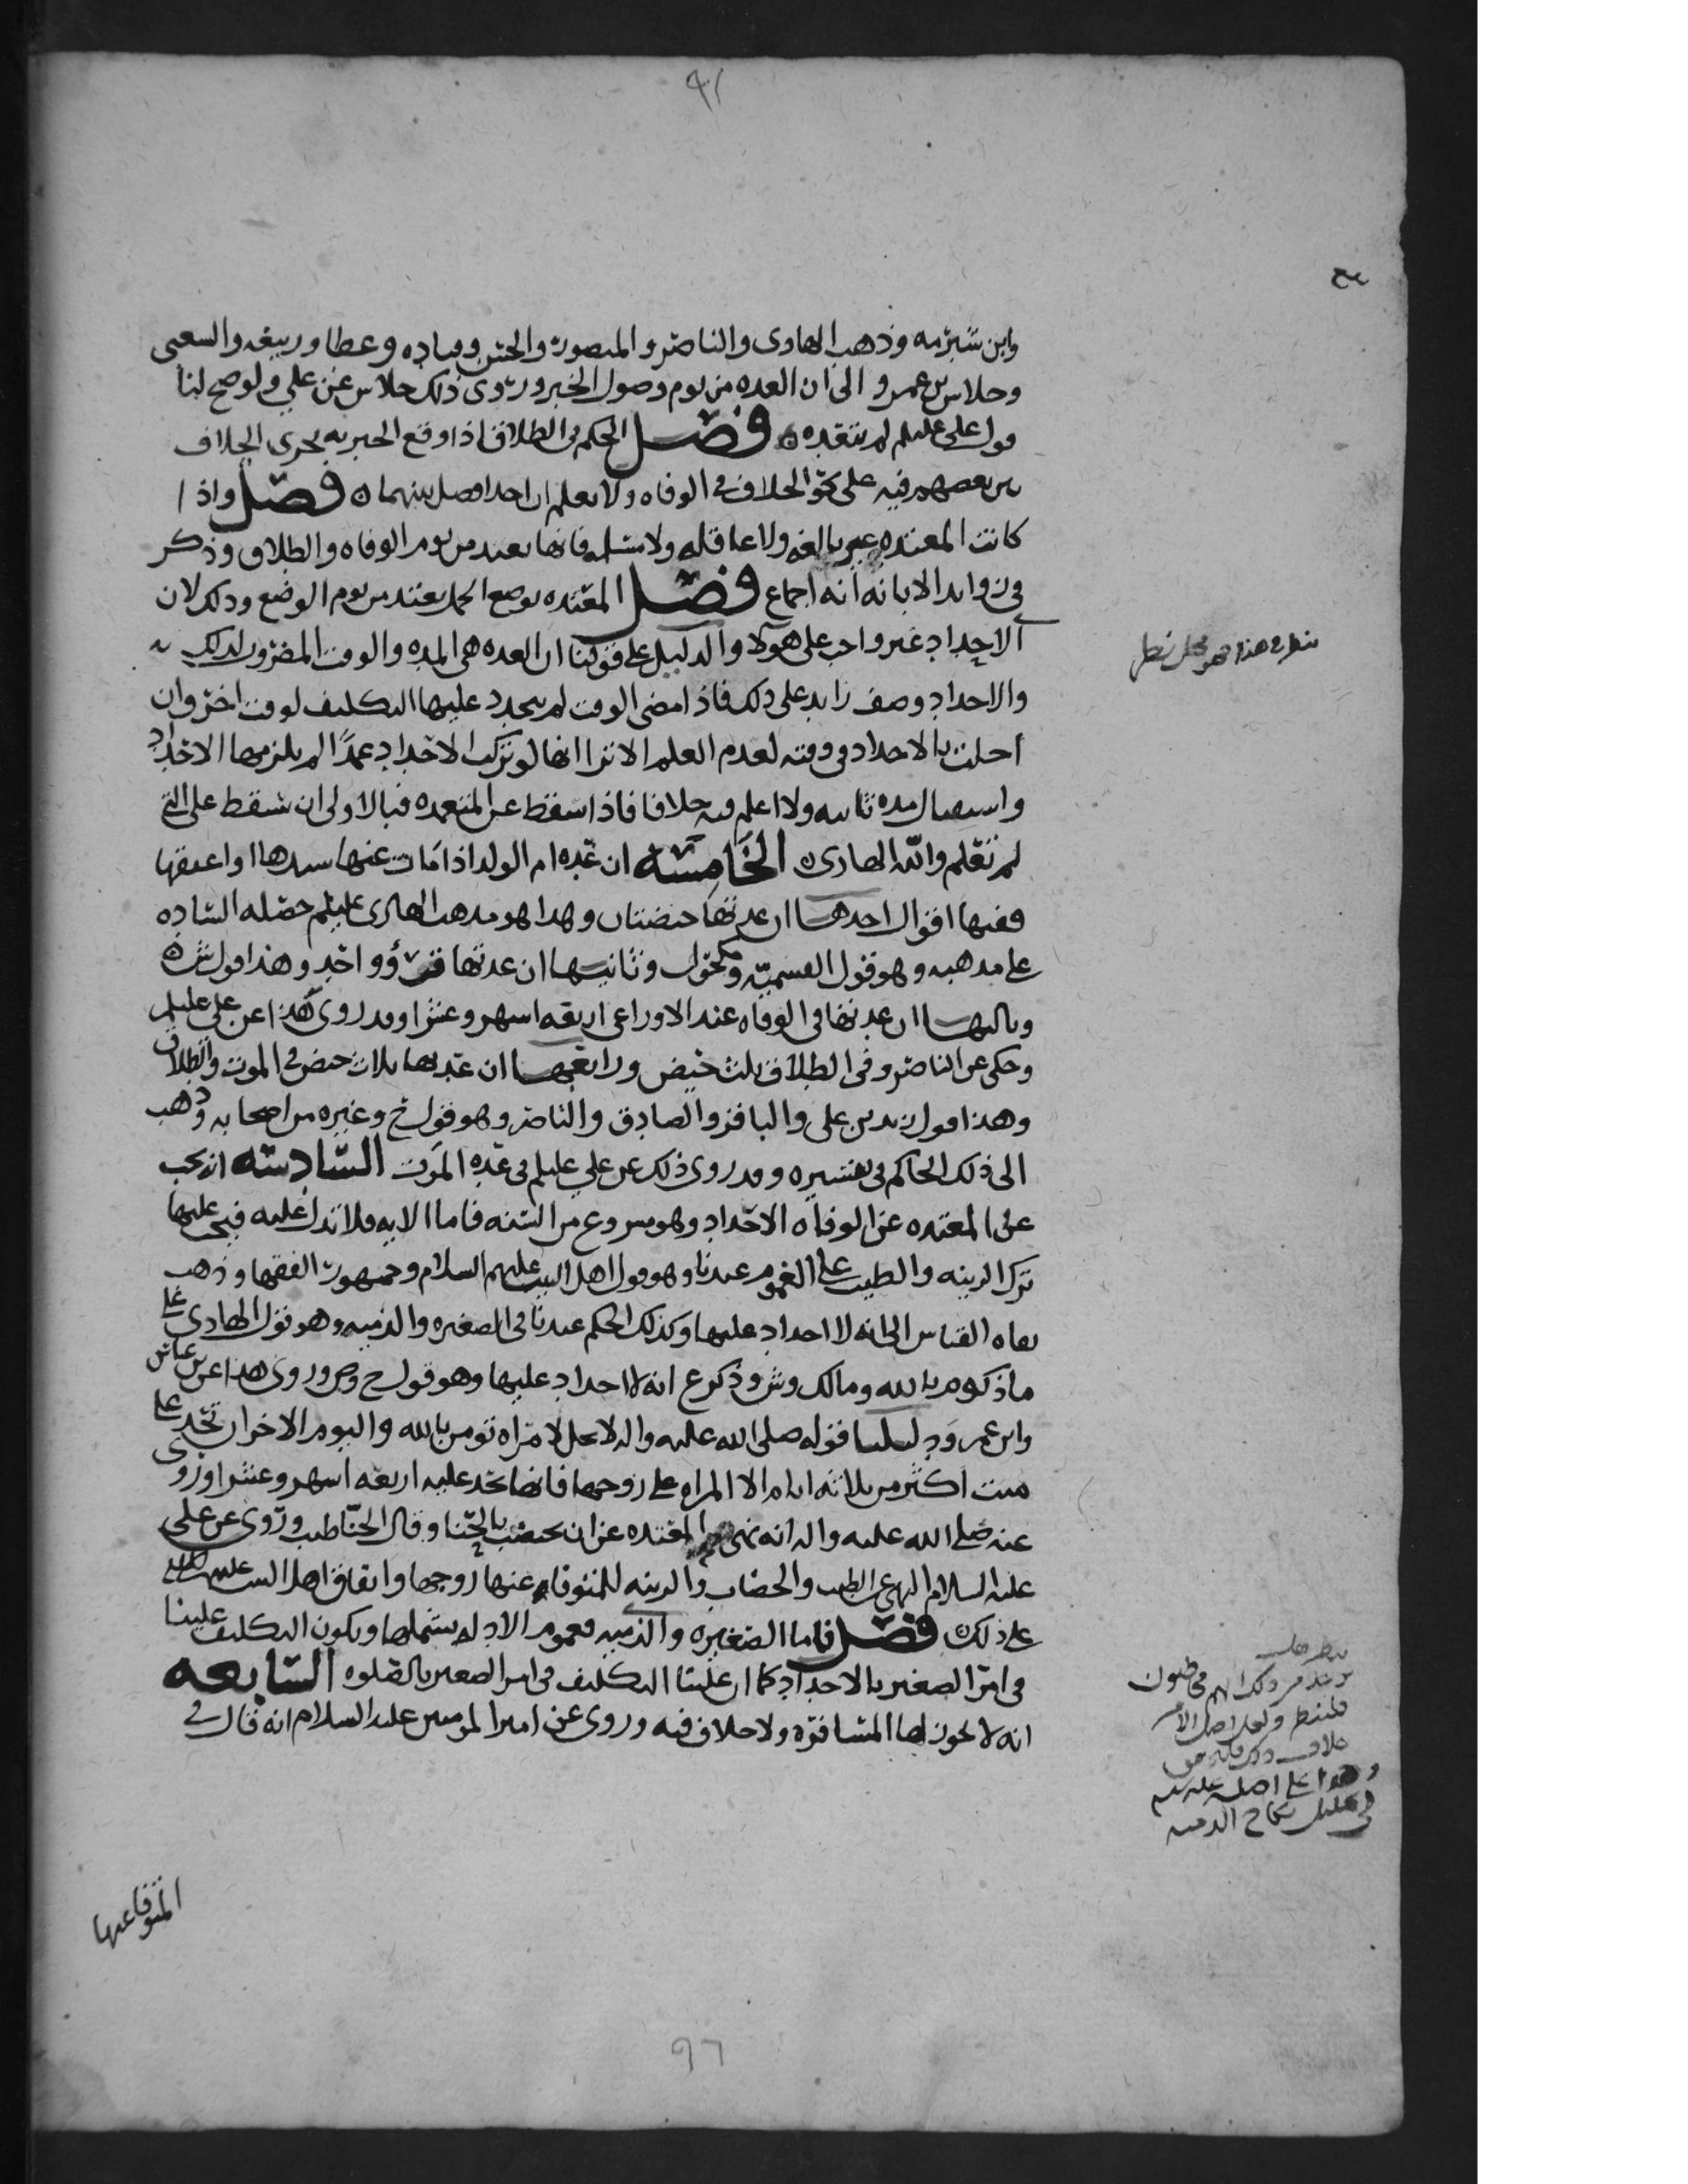 وابن شبرمه وذهب الهادى والناصر والمنصور والحسن وقتاده وعطا وربيعه والشعبى
وخلاس بن عمرو الى ان العده من يوم وصول الخبر وروى ذلك خلاس عن علي ولو صح لنا
قول على عليلم لم نتعده فصل الحكم فى الطلاق اذا وقع الخبر به يجرى الخلاف
بين بعضهم فيه على نحو الخلاف فى الوفاه ولا نعلم ان احدا فصل بينهما فصل واذا
كانت المعتده غير بالغه ولا عاقله ولا مسلمه فانها تعتد من يوم الوفاه والطلاق وذكر
فى زوايد الابانه انه اجماع فصل المعتده بوضع الحمل تعتد من يوم الوضع وذلك لان
الاحداد غير واجب على هولا والدليل على قولنا ان العده هى المده والوقت المضروب لذلك
والاحداد وصف زايد على ذلك فاذا مضى الوقت لم يتجدد عليها التكليف لوقت اخر وان
اخلت بالاحداد فى وقته لعدم العلم الا ترا انها لو تركت الاحداد عمدًا لم يلزمها الاحداد
واستيصال مده ثانيه ولا اعلم فيه خلافا فاذا سقط عن المتعمده فبالاولى ان تسقط على التى
لم تعلم والله الهادى الخامسه ان عده ام الولد اذا مات عنها سيدها او اعتقها
ففيها اقوال احدها ان عدتها حيضتان وهذا هو مذهب الهادى عليلم حصله الساده
على مذهبه وهو قول القسميه ومكحول وثانيها ان عدتها قرؤ واحد وهذا قول ش
وثالثها ان عدتها فى الوفاه عند الاوزاعى اربعه اشهر وعشرا وقد روى هذا عن على عليلم
وحكى عن الناصر وفى الطلاق ثلث حيض ورابعها ان عدتها ثلاث حيض فى الموت والطلاق
وهذا قول زيد بن على والباقر والصادق والناصر وهو قول ح وغيره من اصحابه وذهب
الى ذلك الحاكم فى تفسيره وقد روى ذلك عن علي عليلم فى عده الموت السادسه انه يجب
على المعتده عن الوفاه الاحداد وهو مسروع من السنه فاما الايه فلا تدل عليه فيجب عليها
ترك الزينه والطيب على العموم عندنا وهو قول اهل البيت عليهم السلام وجمهور الفقها وذهب
نفاه القياس الى انه لا احداد عليها وكذلك الحكم عندنا فى الصغيره والذميه وهو قول الهادى على
ما ذكره م بالله ومالك وش وذكر ع انه لا احداد عليها وهو قول ح وص وروى هذا عن بن عباس
وابن عمر ودليلنا قوله صلى الله عليه واله لا يحل لامراه تومن بالله واليوم الاخر ان تحد على
ميت اكثر من ثلاثه ايام الا المراه على زوجها فانها تحد عليه اربعه اشهر وعشرا وروى
عنه صلى الله عليه واله انه نهى المعتده عن ان تختضب بالحنا وقال الحنا طيب وروى عن على
عليه السلام النهى عن الطيب والخضاب والزينه للمتوفا عنها زوجها واتفاق اهل البيت عليهم السلام
على ذلك فصل فاما الصغيره والذميه فعموم الادله يشملها ويكون التكليف علينا
فى امر الصغير بالاحداد كما ان علينا التكليف فى امر الصغير بالصلوه السابعه
انه لا يجوز لها المسافره ولا خلاف فيه وروى عن امير المومنين عليه السلام انه قال فى
المتوفا عنها
ينظر فى هذا فهو محل نظر
فلينظر ولعل اصل الام
وهذا على اصله عليلم
فى تحليل نكاح الذميه